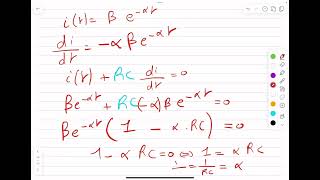 i(r) = B e^{-αr}
di/dr = -α B e^{-αr}
i(r) + RC di/dr = 0
B e^{-αr} + RC(-α) B e^{-αr} = 0
B e^{-αr} ( 1 - α RC ) = 0
1 - α RC = 0 ⇔ 1 = α RC
1/RC = α